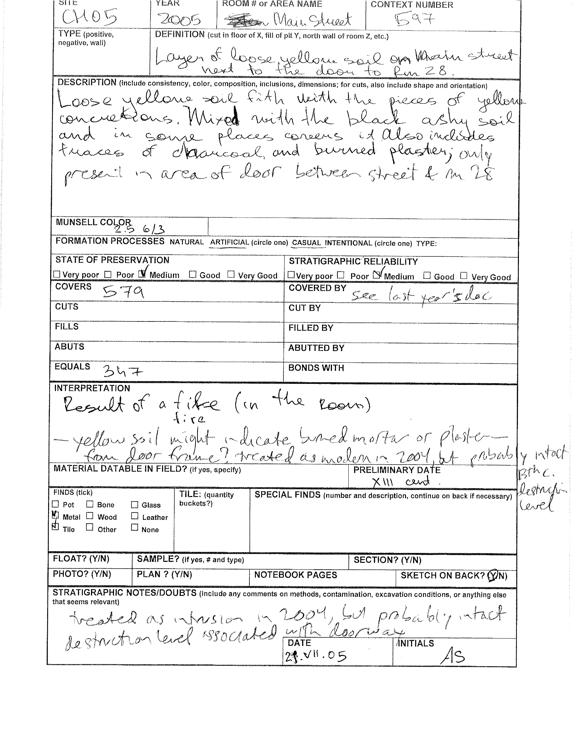 SITE YEAR ROOM # or AREA NAME CONTEXT NUMBER
CH05 2005 Main Street 597
TYPE (positive, negative, wall) DEFINITION (cut in floor of X, fill of pit Y, north wall of room Z, etc.)
Layer of loose yellow soil on Main street
next to the door to Rm 28.
DESCRIPTION (Include consistency, color, composition, inclusions, dimensions; for cuts, also include shape and orientation)
Loose yellow soil with the pieces of yellow
concretions. Mixed with the black ashy soil
and in some places covers it. Also includes
traces of charcoal, and burned plaster; only
present in area of door between street & rm 28
MUNSELL COLOR
2.5 6/3
FORMATION PROCESSES NATURAL ARTIFICIAL (circle one) CASUAL INTENTIONAL (circle one) TYPE:
STATE OF PRESERVATION STRATIGRAPHIC RELIABILITY
Very poor Poor Medium Good Very Good Very poor Poor Medium Good Very Good
COVERS 579 COVERED BY see last year's doc
CUTS CUT BY
FILLS FILLED BY
ABUTS ABUTTED BY
EQUALS 347 BONDS WITH
INTERPRETATION
Result of a fire (in the room)
fire
- yellow soil might indicate burned mortar or plaster -
from door frame? treated as modern in 2004, but probably intact
Byz c.
destruction
level
MATERIAL DATABLE IN FIELD? (if yes, specify) PRELIMINARY DATE
XIII cent.
FINDS (tick) TILE: (quantity buckets?) SPECIAL FINDS (number and description, continue on back if necessary)
Pot Bone Glass
Metal Wood Leather
Tile Other None
FLOAT? (Y/N) SAMPLE? (if yes, # and type) SECTION? (Y/N)
PHOTO? (Y/N) PLAN ? (Y/N) NOTEBOOK PAGES SKETCH ON BACK? (Y/N)
STRATIGRAPHIC NOTES/DOUBTS (Include any comments on methods, contamination, excavation conditions, or anything else
that seems relevant)
treated as intrusion in 2004, but probably intact
destruction level associated with doorway
DATE INITIALS
21.VII.05 AS